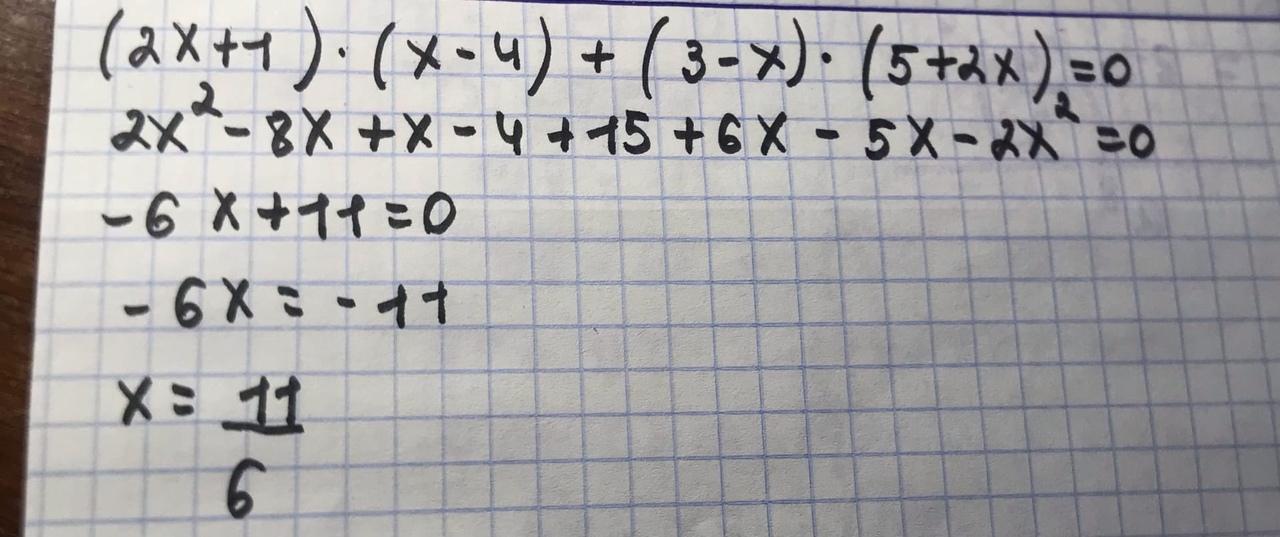 (2x+1)·(x-4)+(3-x)·(5+2x)=0
2x²-8x+x-4+15+6x-5x-2x²=0
-6x+11=0
-6x=-11
x=11/6